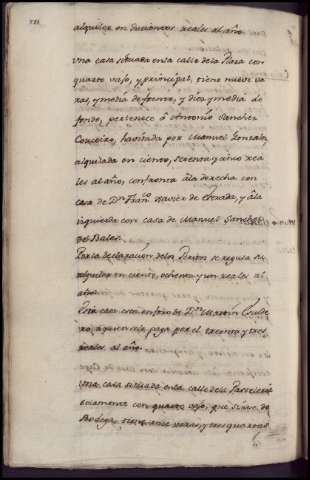 alquiler en ducientos reales al año
Una casa situada enla calle dela Plaza con
quarto vajo, y principal, tiene nueve va
ras, y media de frente, y diez y media de
fondo, pertenece á Antonio Sanchez
havitada por Manuel Gonzalez,
alquilada en ciento, sesenta y cinco rea
les al año, confronta ála derecha con
casa de Dn Franco Xavier de y ála
izquierda con casa de Manuel Sanchez
de
Por la declaracion delos Peritos se regula su
alquiler en ciento, ochenta y un reales al
año
Esta casa esta en foro de Dn Martin
à quien se le paga por el treinta y tres
reales al año.
Una casa situada enla calle dela
con quarto vajo, que sirve de
Bodega, tiene once varas, y tres quartas